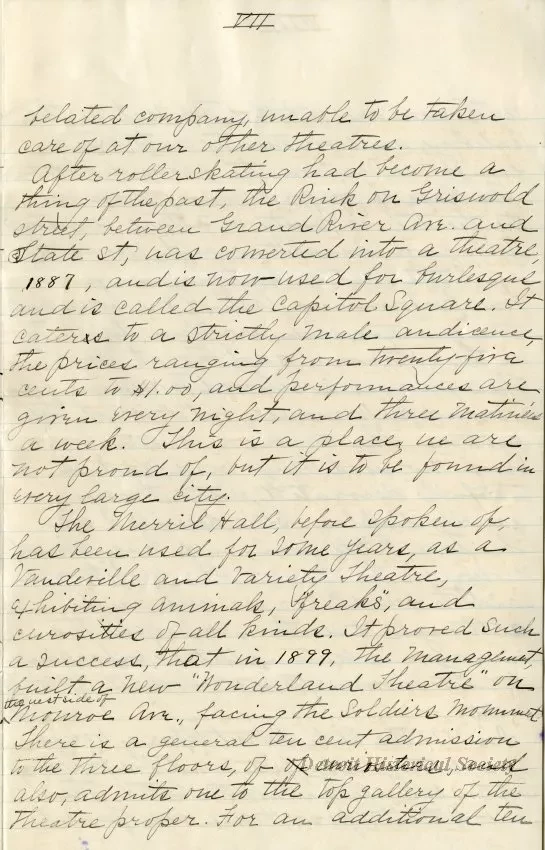 VII
belated company, unable to be taken
care of at our other theatres.
After roller skating had become a
thing of the past, the Rink on Griswold
street, between Grand River Ave. and
State st, was converted into a theatre,
1887, and is now used for burlesque
and is called the Capitol Square. It
caters to a strictly male audicence,
the prices ranging from twenty-five
cents to $1.00, and performances are
given every night, and three Matinées
a week. This is a place, we are
not proud of, but it is to be found in
every large city.
The Merril Hall, before spoken of,
has been used for some years, as a
Vaudeville and Variety Theatre,
exhibiting animals, "freaks", and
curosities of all kinds. It proved such
a success, that in 1899, the management
built a new "Wonderland Theatre" on
the west side of
Monroe Ave., facing the Soldiers Monument
There is a general ten cent admission
to the three floors, of
Detroit Historical Society
also, admits one to the top gallery of the
theatre proper. For an additional ten